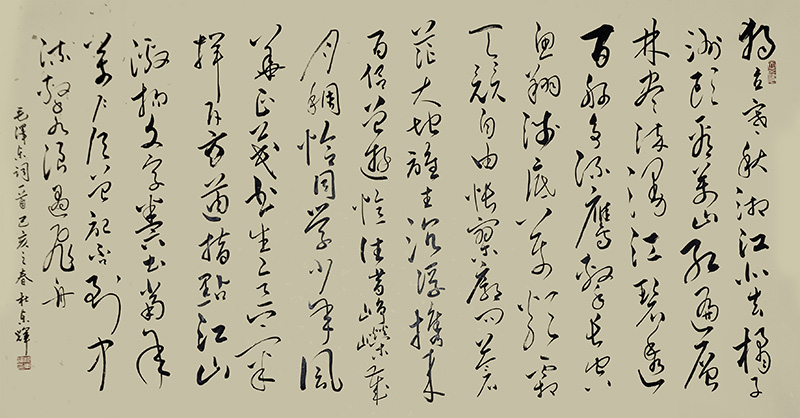 独立寒秋湘江北去橘子
洲头看萬山红遍层
林尽染漫江碧透
百舸争流鷹擊长空
鱼翔浅底萬類霜
天競自由怅寥廓问苍
茫大地誰主沉浮攜来
百侣曾遊憶往昔崢嶸歲
月稠恰同学少年風
華正茂书生意气
揮斥方遒指點江山
激扬文字粪土當年
萬户侯曾记否到中
流擊水浪遏飛舟
毛澤东词一首己亥之春杜东輝